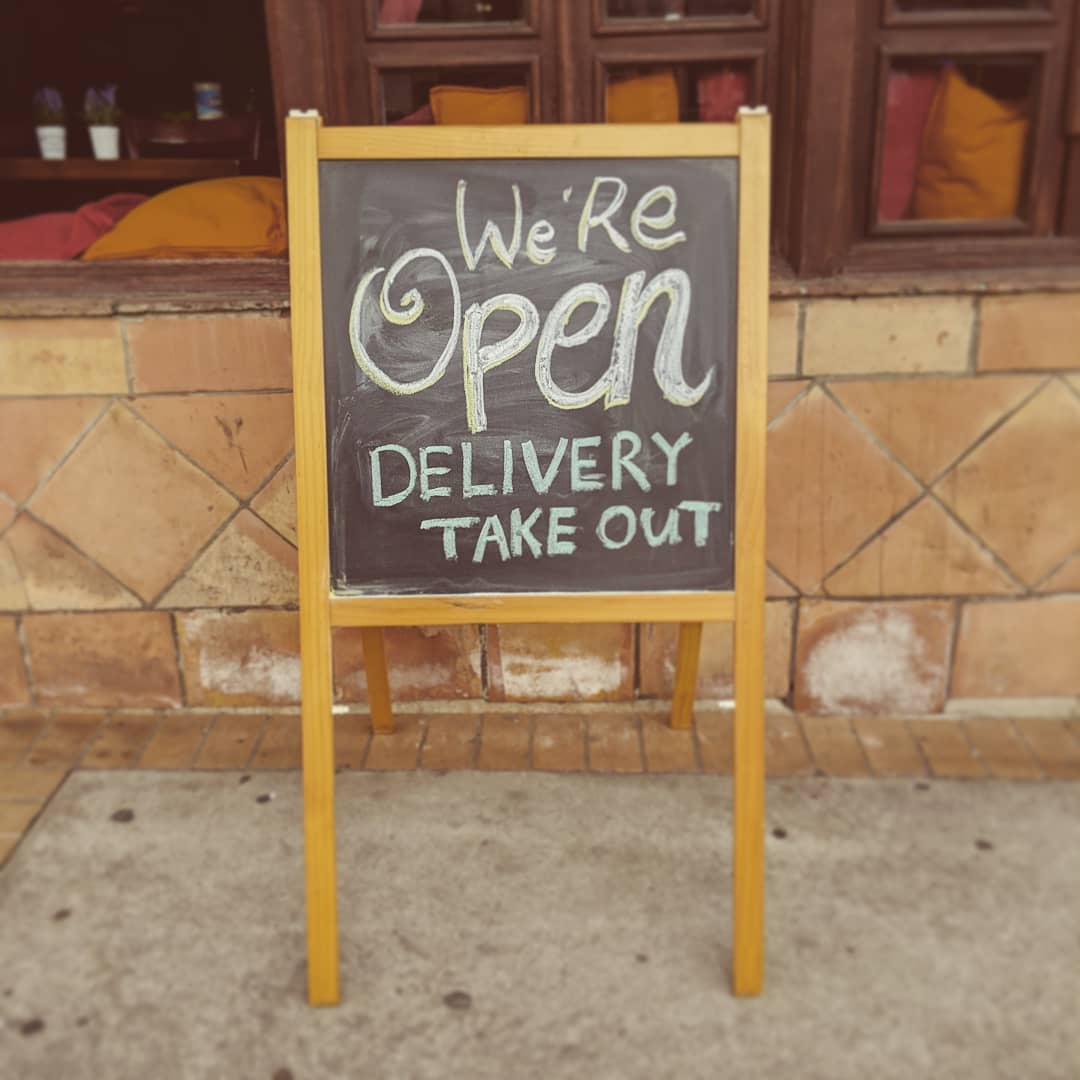 We'Re
Open
DELIVERY
TAKE OUT